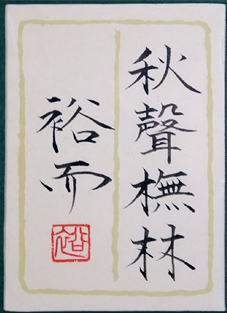 秋聲橅林
裕而